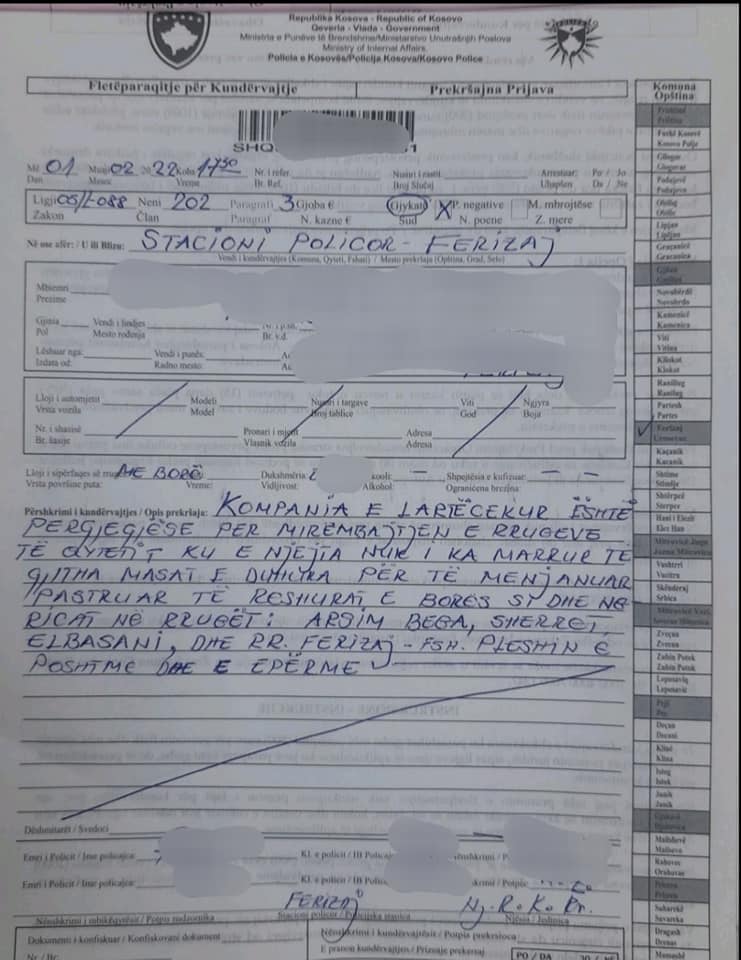 Republika Kosova - Republic of Kosovo
Qeveria - Vlada - Government
Ministria e Punëve të Brendshme/Ministarstvo Unutrašnjih Poslova
Ministry of Internal Affairs
Policia e Kosovës/Policija Kosova/Kosovo Police
Fletëparaqitje për Kundërvajtje Prekršajna Prijava
SHQ 1
Më 01 Muaj 02 2022 Koha 1750 Nr. i refer. Numri i rastit Arrestuar: Po / Jo
Dan Mesec Vreme Br. Ref. Broj Slučaj Uhapšen: Da / Ne
Ligji 05/L-088 Neni 202 Paragrafi 3 Gjoba € Gjykatë X P. negative M. mbrojtëse
Zakon Član Paragraf N. kazne € Sud N. poene Z. mere
Në ose afër: / U ili Blizu: STACIONI POLICOR - FERIZAJ
Vendi i kundërvajtjes (Komuna, Qyteti, Fshati) / Mesto prekršaja (Opština, Grad, Selo)
Mbiemri
Prezime
Gjinia Vendi i lindjes
Pol Mesto rođenja Br. v.d.
Lëshuar nga: Vendi i punës:
Izdata od: Radno mesto:
Lloji i automjetit Modeli Numri i targave Viti Ngjyra
Vrsta vozila Model Broj tablice God Boja
Nr. i shasisë Pronari i mjetit Adresa
Br. šasije Vlasnik vozila Adresa
Lloji i sipërfaqes së ME BORË Dukshmëria: kooli: — Shpejtësia e kufizuar: — —
Vrsta površine puta: Vreme: Vidljivost: Alkohol: Ograničena brzina:
Përshkrimi i kundërvajtjes / Opis prekršaja: KOMPANIA E LARTËCEKUR ËSHTË
PERGJEGJËSE PER MIREMBAJTJEN E RRUGEVE
TË QYTETIT KU E NJEJTA NUK I KA MARRUR TË
GJITHA MASAT E DUHURA PËR TË MENJANUAR
PASTRUAR TË RESHURAT E BORËS SI DHE NG
RICAT NË RRUGËT: ARSIM BEGA, SHERRET,
ELBASANI, DHE RR. FERIZAJ - FSH. PLESHIN E
POSHTME DHE E EPËRME
Dëshmitarët / Svedoci
Emri i Policit / Ime policajca: Kl. e policit / ID Policaj
Emri i Policit / Ime policajca: Kl. e policit / ID Policaj
FERIZAJ Nj. R. K. Kr.
Nënshkrimi i mbikëqyrësit / Potpis nadzornika Stacioni policor / Policijska stanica Njësia / Jedinica
Dokumenti i konfiskuar / Konfiskovani dokument Nënshkrimi i kundërvajtësit / Potpis prekršioca
Nr. / Br. E pranon kundërvajtjen / Priznaje prekršaj PO / DA
Komuna
Opština
Fushë Kosovë
Kosovo Polje
Gllogoc
Glogovac
Podujevë
Podujevo
Obiliq
Obilić
Lipjan
Lipljan
Graçanicë
Gračanica
Novobërdë
Novobrdo
Kamenicë
Kamenica
Viti
Vitina
Kllokot
Klokot
Ranillug
Ranilug
Partesh
Parteš
Ferizaj
Uroševac
Kaçanik
Kačanik
Shtime
Štimlje
Shtërpcë
Štrpce
Hani i Elezit
Elez Han
Vushtrri
Vučitrn
Skënderaj
Srbica
Zveçan
Zvečan
Zubin Potok
Zubin Potok
Leposaviq
Leposavić
Pejë
Peć
Deçan
Dečani
Klinë
Klina
Istog
Istok
Junik
Junik
Malishevë
Mališevo
Rahovec
Orahovac
Suharekë
Suvareka
Dragash
Dragaš
Mamushë